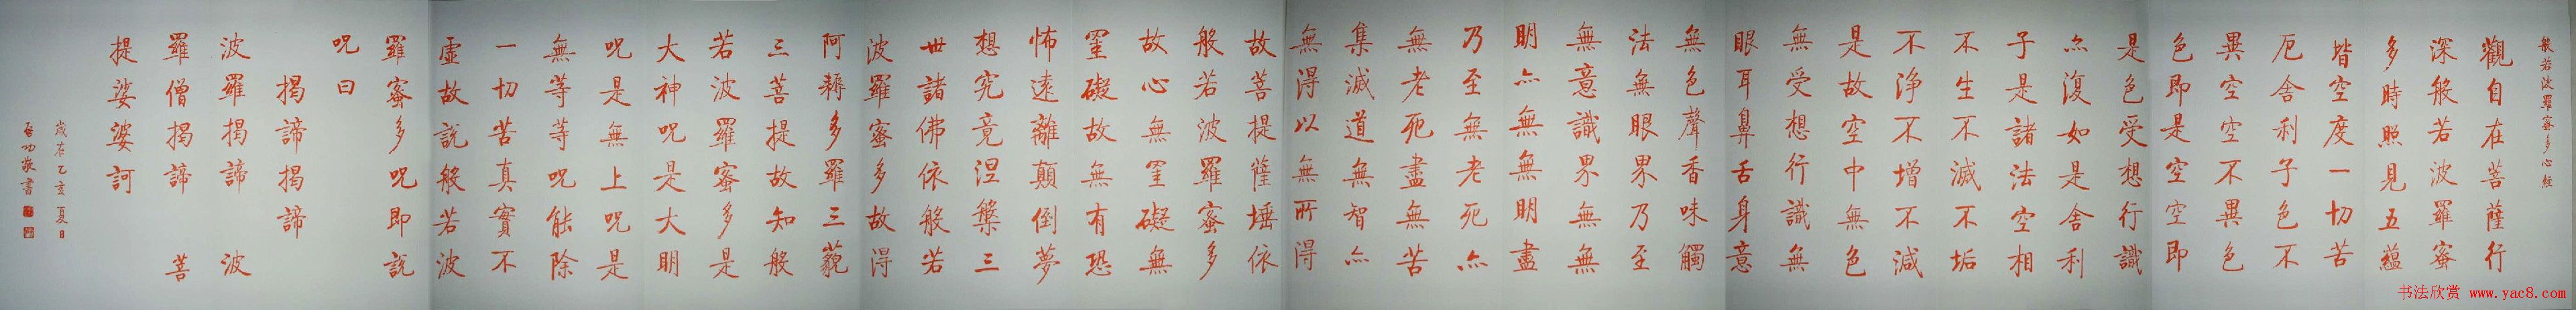 般若波羅蜜多心經
觀自在菩薩行
深般若波羅蜜
多時照見五蘊
皆空度一切苦
厄舍利子色不
異空空不異色
色即是空空即
是色受想行識
亦復如是舍利
子是諸法空相
不生不滅不垢
不淨不增不減
是故空中無色
無受想行識無
眼耳鼻舌身意
無色聲香味觸
法無眼界乃至
無意識界無無
明亦無無明盡
乃至無老死亦
無老死盡無苦
集滅道無智亦
無得以無所得
故菩提薩埵依
般若波羅蜜多
故心無罣礙無
罣礙故無有恐
怖遠離顛倒夢
想究竟涅槃三
世諸佛依般若
波羅蜜多故得
阿耨多羅三藐
三菩提故知般
若波羅蜜多是
大神呪是大明
呪是無上呪是
無等等呪能除
一切苦真實不
虛故說般若波
羅蜜多呪即說
呪曰
揭諦揭諦
波羅揭諦 波
羅僧揭諦 菩
提娑婆訶
歲在乙亥夏日
启功敬書
书法欣赏 www.yac8.com